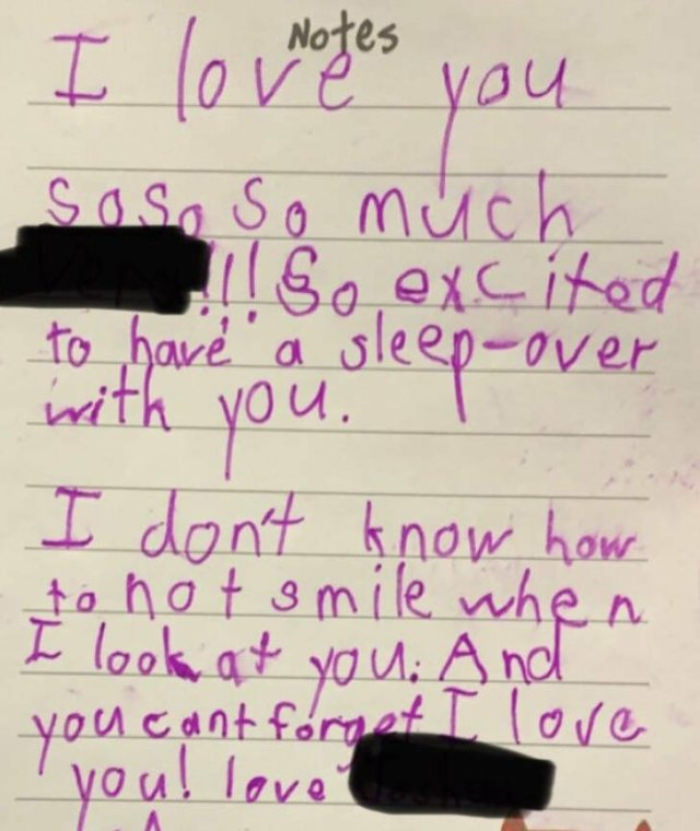 Notes
I love you
so so so much
!!! So excited
to have a sleep-over
with you.
I don't know how
to not smile when
I look at you. And
you cant forget I love
you! love